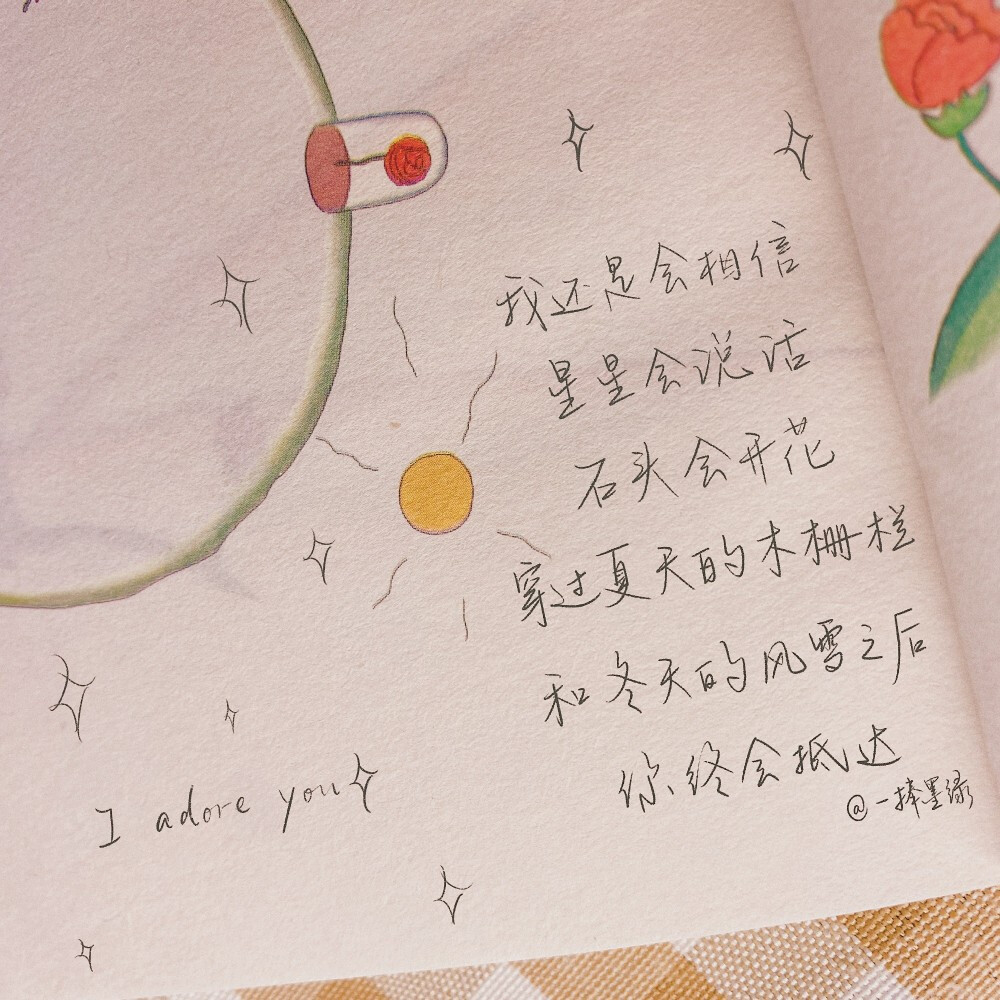 我还是会相信
星星会说话
石头会开花
穿过夏天的木栅栏
和冬天的风雪之后
你终会抵达
@一捧墨绿
I adore you